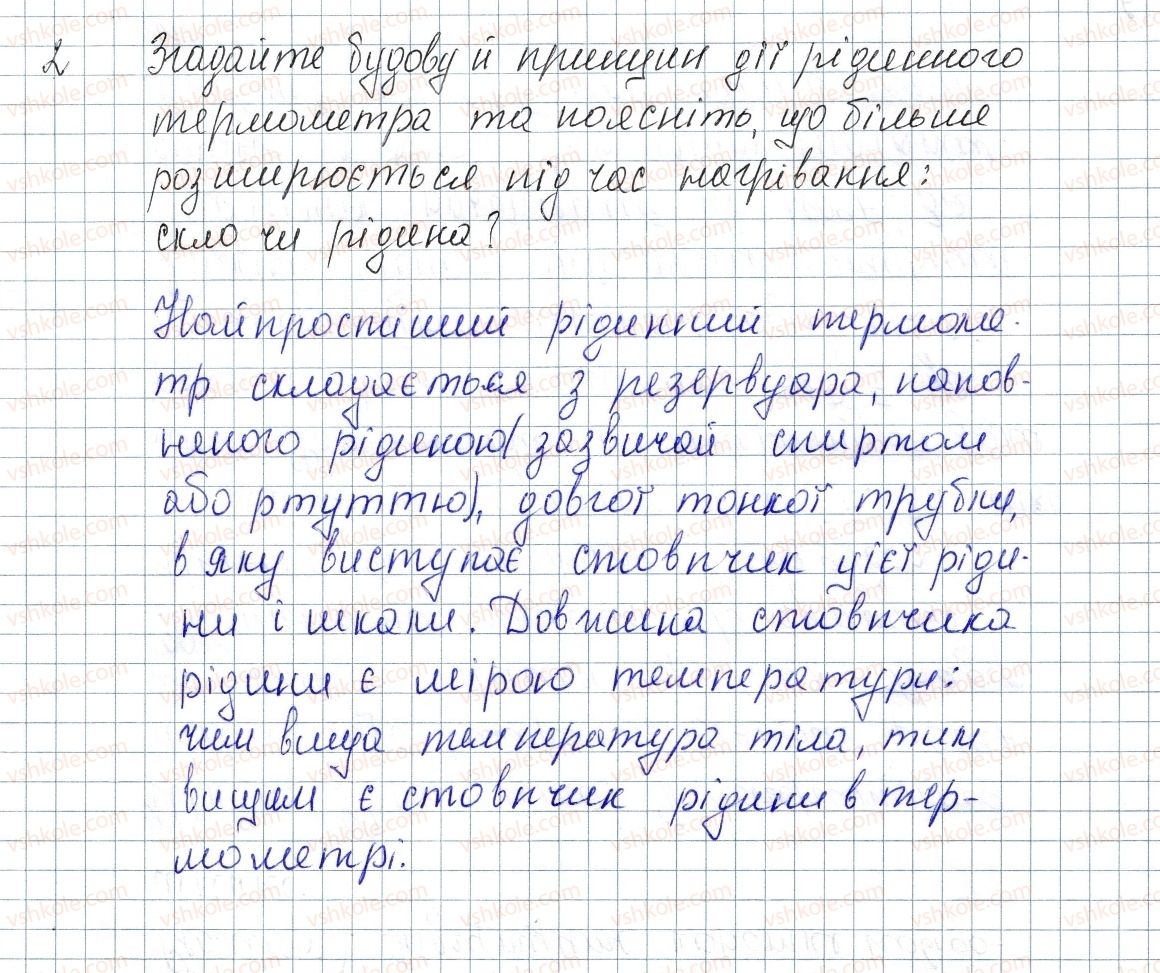 2 Згадайте будову й принцип дії рідинного
термометра та поясніть, що більше
розширюється під час нагрівання:
скло чи рідина?
Найпростіший рідинний термоме-
тр складається з резервуара, напов-
неного рідиною (зазвичай спиртом
або ртуттю), довгої тонкої трубки,
в яку виступає стовпчик цієї ріди-
ни і шкали. Довжина стовпчика
рідини є мірою температури:
чим вища температура тіла, тим
вищим є стовпчик рідини в тер-
мометрі.